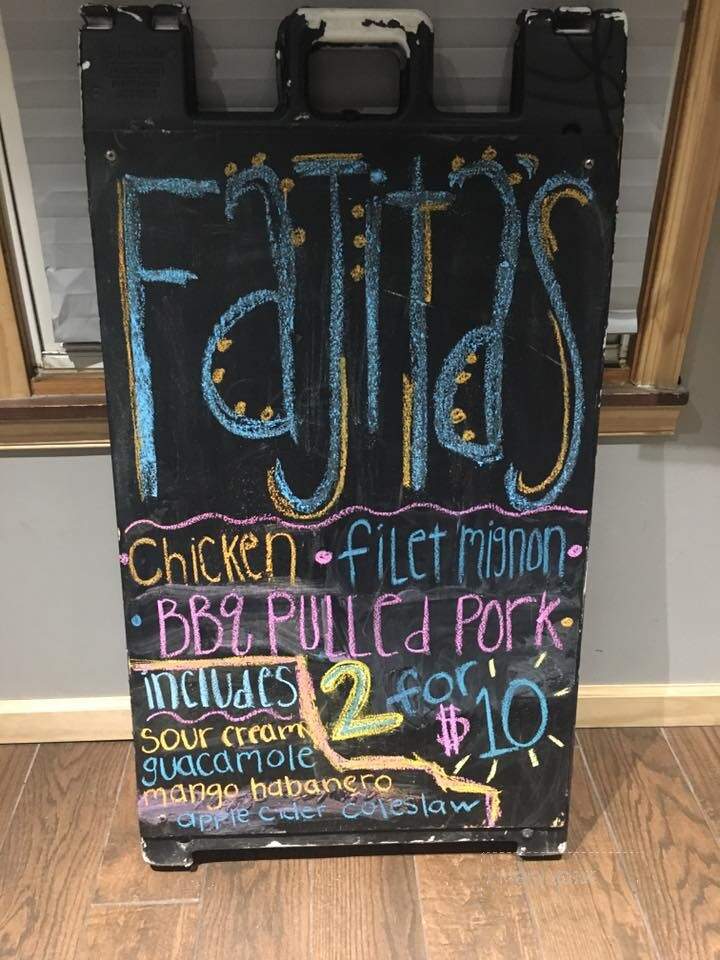 Fajita's
Chicken • filet mignon •
• BBq PULLed Pork •
includes
2 for $10
sour cream
guacamole
mango habanero
apple cider coleslaw